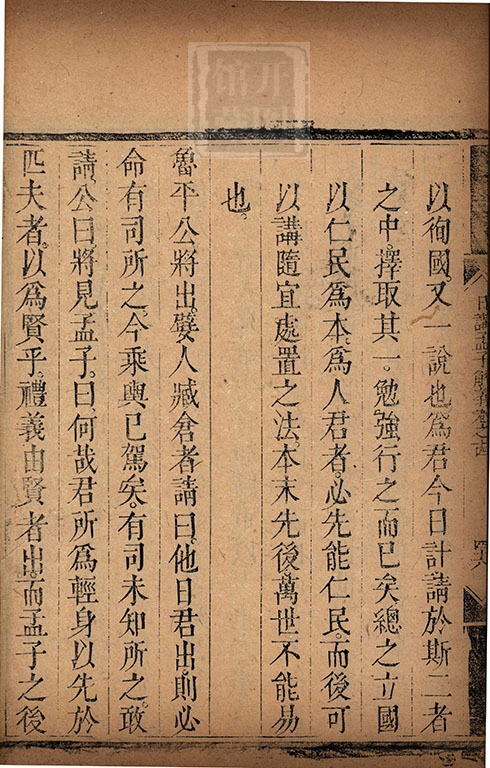 以徇國又一說也為君今日計請於斯二者
之中擇取其一勉強行之而已矣總之立國
以仁民為本為人君者必先能仁民而後可
以講隨宜處置之法本末先後萬世不能易
也
魯平公將出嬖人臧倉者請曰他日君出則必
命有司所之今乘輿已駕矣有司未知所之敢
請公曰將見孟子曰何哉君所為輕身以先於
匹夫者以為賢乎禮義由賢者出而孟子之後